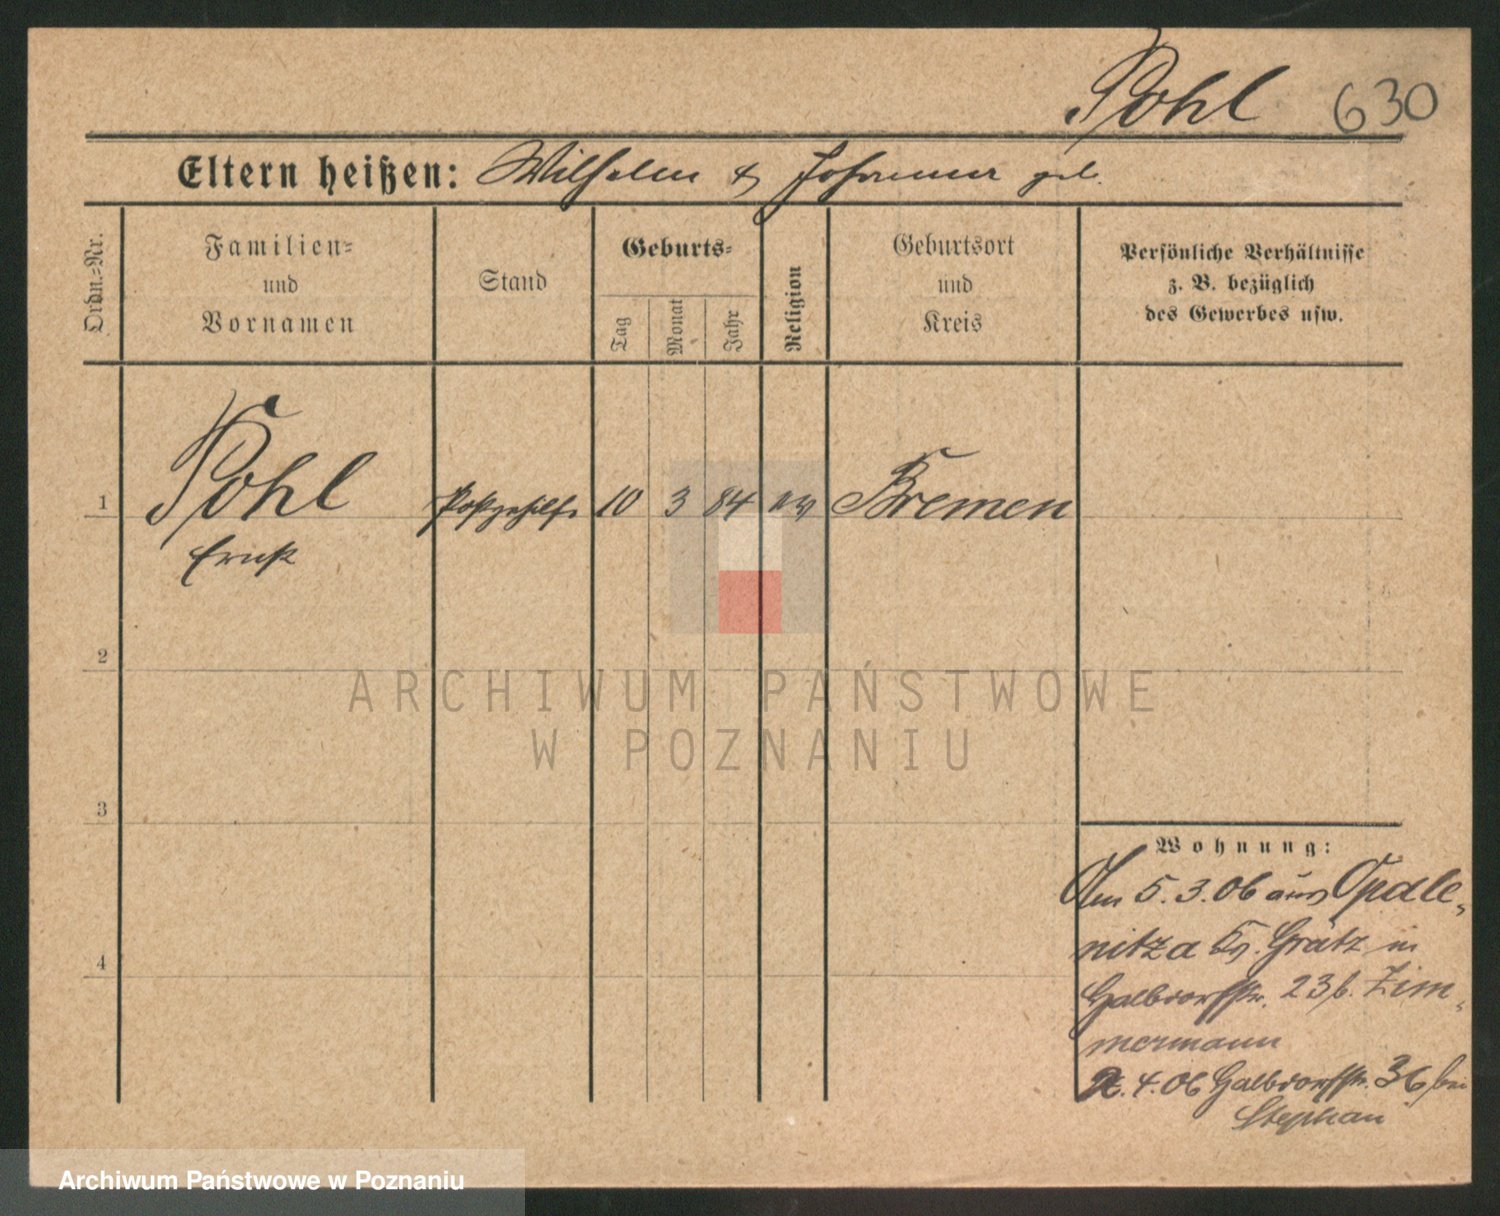 Pohl 630
Eltern heißen: Wilhelm & Johanna geb.
Ordn.=Nr.
Familien=
und
Vornamen
Stand
Geburts=
Tag
Monat
Jahr
Religion
Geburtsort
und
Kreis
Persönliche Verhältnisse
z. B. bezüglich
des Gewerbes usw.
1 Pohl Postgehilfe 10 3 84 ev Bremen
Ernst
2
3
4
Wohnung:
Am 5.3.06 aus Opale-
nitza Kr. Grätz in
Halbdorfstr. 23 b. Zim-
mermann
4.06 Halbdorfstr. 36 bei
Stephan
ARCHIWUM PAŃSTWOWE
W POZNANIU
Archiwum Państwowe w Poznaniu